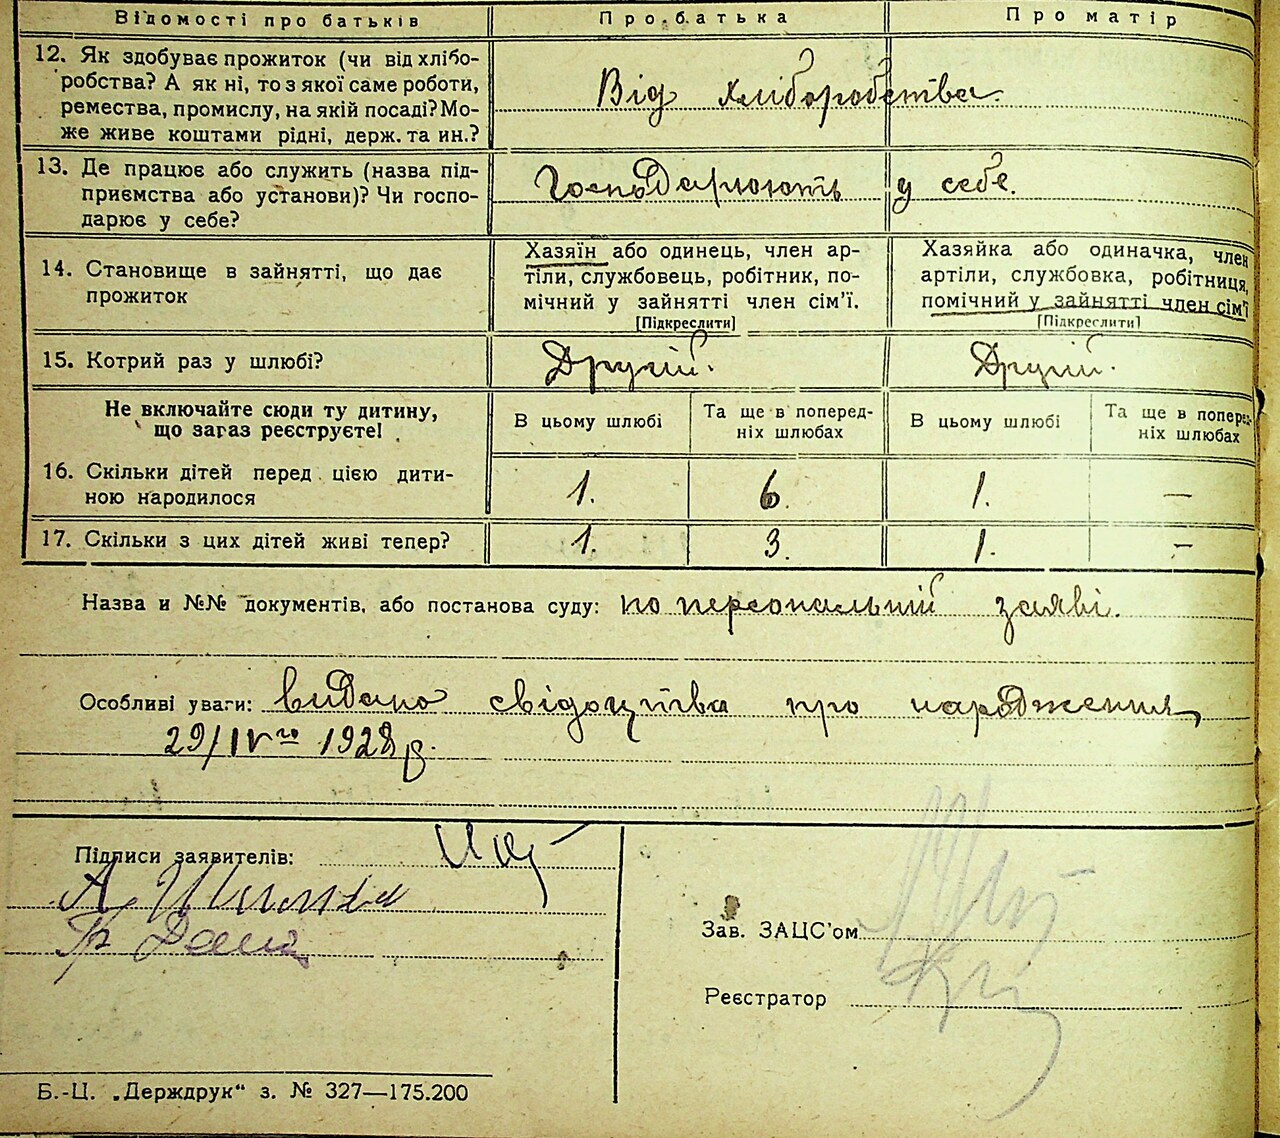 Відомості про батьків Про батька Про матір
12. Як здобуває прожиток (чи від хлібо-
робства? А як ні, то з якої саме роботи,
ремества, промислу, на якій посаді? Мо-
же живе коштами рідні, держ. та ин.?
Від хліборобства.
13. Де працює або служить (назва під-
приємства або установи)? Чи госпо-
дарює у себе?
Господарюють у себе.
14. Становище в зайнятті, що дає
прожиток
Хазяїн або одинець, член ар-
тіли, службовець, робітник, по-
мічний у зайнятті член сім'ї.
[Підкреслити]
Хазяйка або одиначка, член
артіли, службовка, робітниця,
помічний у зайнятті член сім'ї
[Підкреслити]
15. Котрий раз у шлюбі? Другій. Другій.
Не включайте сюди ту дитину,
що зараз реєструєте!
В цьому шлюбі
Та ще в поперед-
ніх шлюбах
В цьому шлюбі
Та ще в поперед-
ніх шлюбах
16. Скільки дітей перед цією дити-
ною народилося
1. 6. 1. —
17. Скільки з цих дітей живі тепер? 1. 3. 1. —
Назва и №№ документів, або постанова суду: по персональній заяві.
Особливі уваги: видано свідоцтва про народження
29/IV го 1928 р.
Підписи заявителів:
А.
Зав. ЗАЦС'ом
Реєстратор
Б.-Ц. „Держдрук" з. № 327—175.200